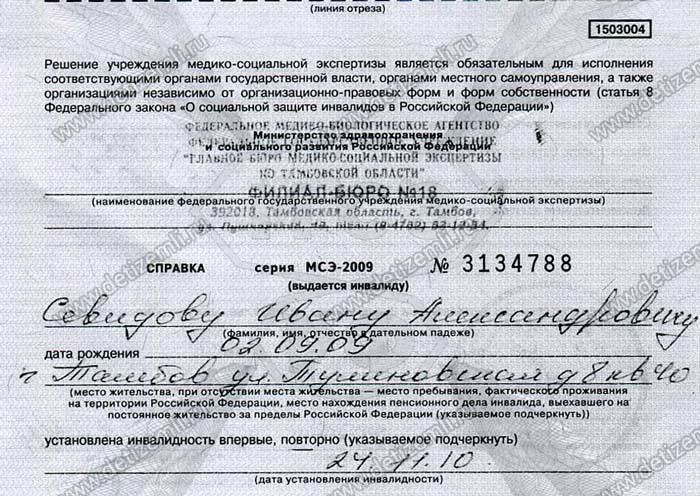 (линия отреза)
1503004
Решение учреждения медико-социальной экспертизы является обязательным для исполнения
соответствующими органами государственной власти, органами местного самоуправления, а также
организациями независимо от организационно-правовых форм и форм собственности (статья 8
Федерального закона «О социальной защите инвалидов в Российской Федерации»)
ФЕДЕРАЛЬНОЕ МЕДИКО-БИОЛОГИЧЕСКОЕ АГЕНТСТВО
Министерство здравоохранения
и социального развития Российской Федерации
"ГЛАВНОЕ БЮРО МЕДИКО-СОЦИАЛЬНОЙ ЭКСПЕРТИЗЫ
ПО ТАМБОВСКОЙ ОБЛАСТИ"
ФИЛИАЛ-БЮРО №18
(наименование федерального государственного учреждения медико-социальной экспертизы)
392018, Тамбовская область, г. Тамбов,
СПРАВКА серия МСЭ-2009 № 3134788
(выдается инвалиду)
Севидову Ивану Александровичу
(фамилия, имя, отчество в дательном падеже)
дата рождения 02.09.09
г Тамбов ул. Тулиновская д 8 кв 40
(место жительства, при отсутствии места жительства — место пребывания, фактического проживания
на территории Российской Федерации, место нахождения пенсионного дела инвалида, выехавшего на
постоянное жительство за пределы Российской Федерации (указываемое подчеркнуть))
установлена инвалидность впервые, повторно (указываемое подчеркнуть)
24.11.10.
(дата установления инвалидности)
www.detizemli.ru